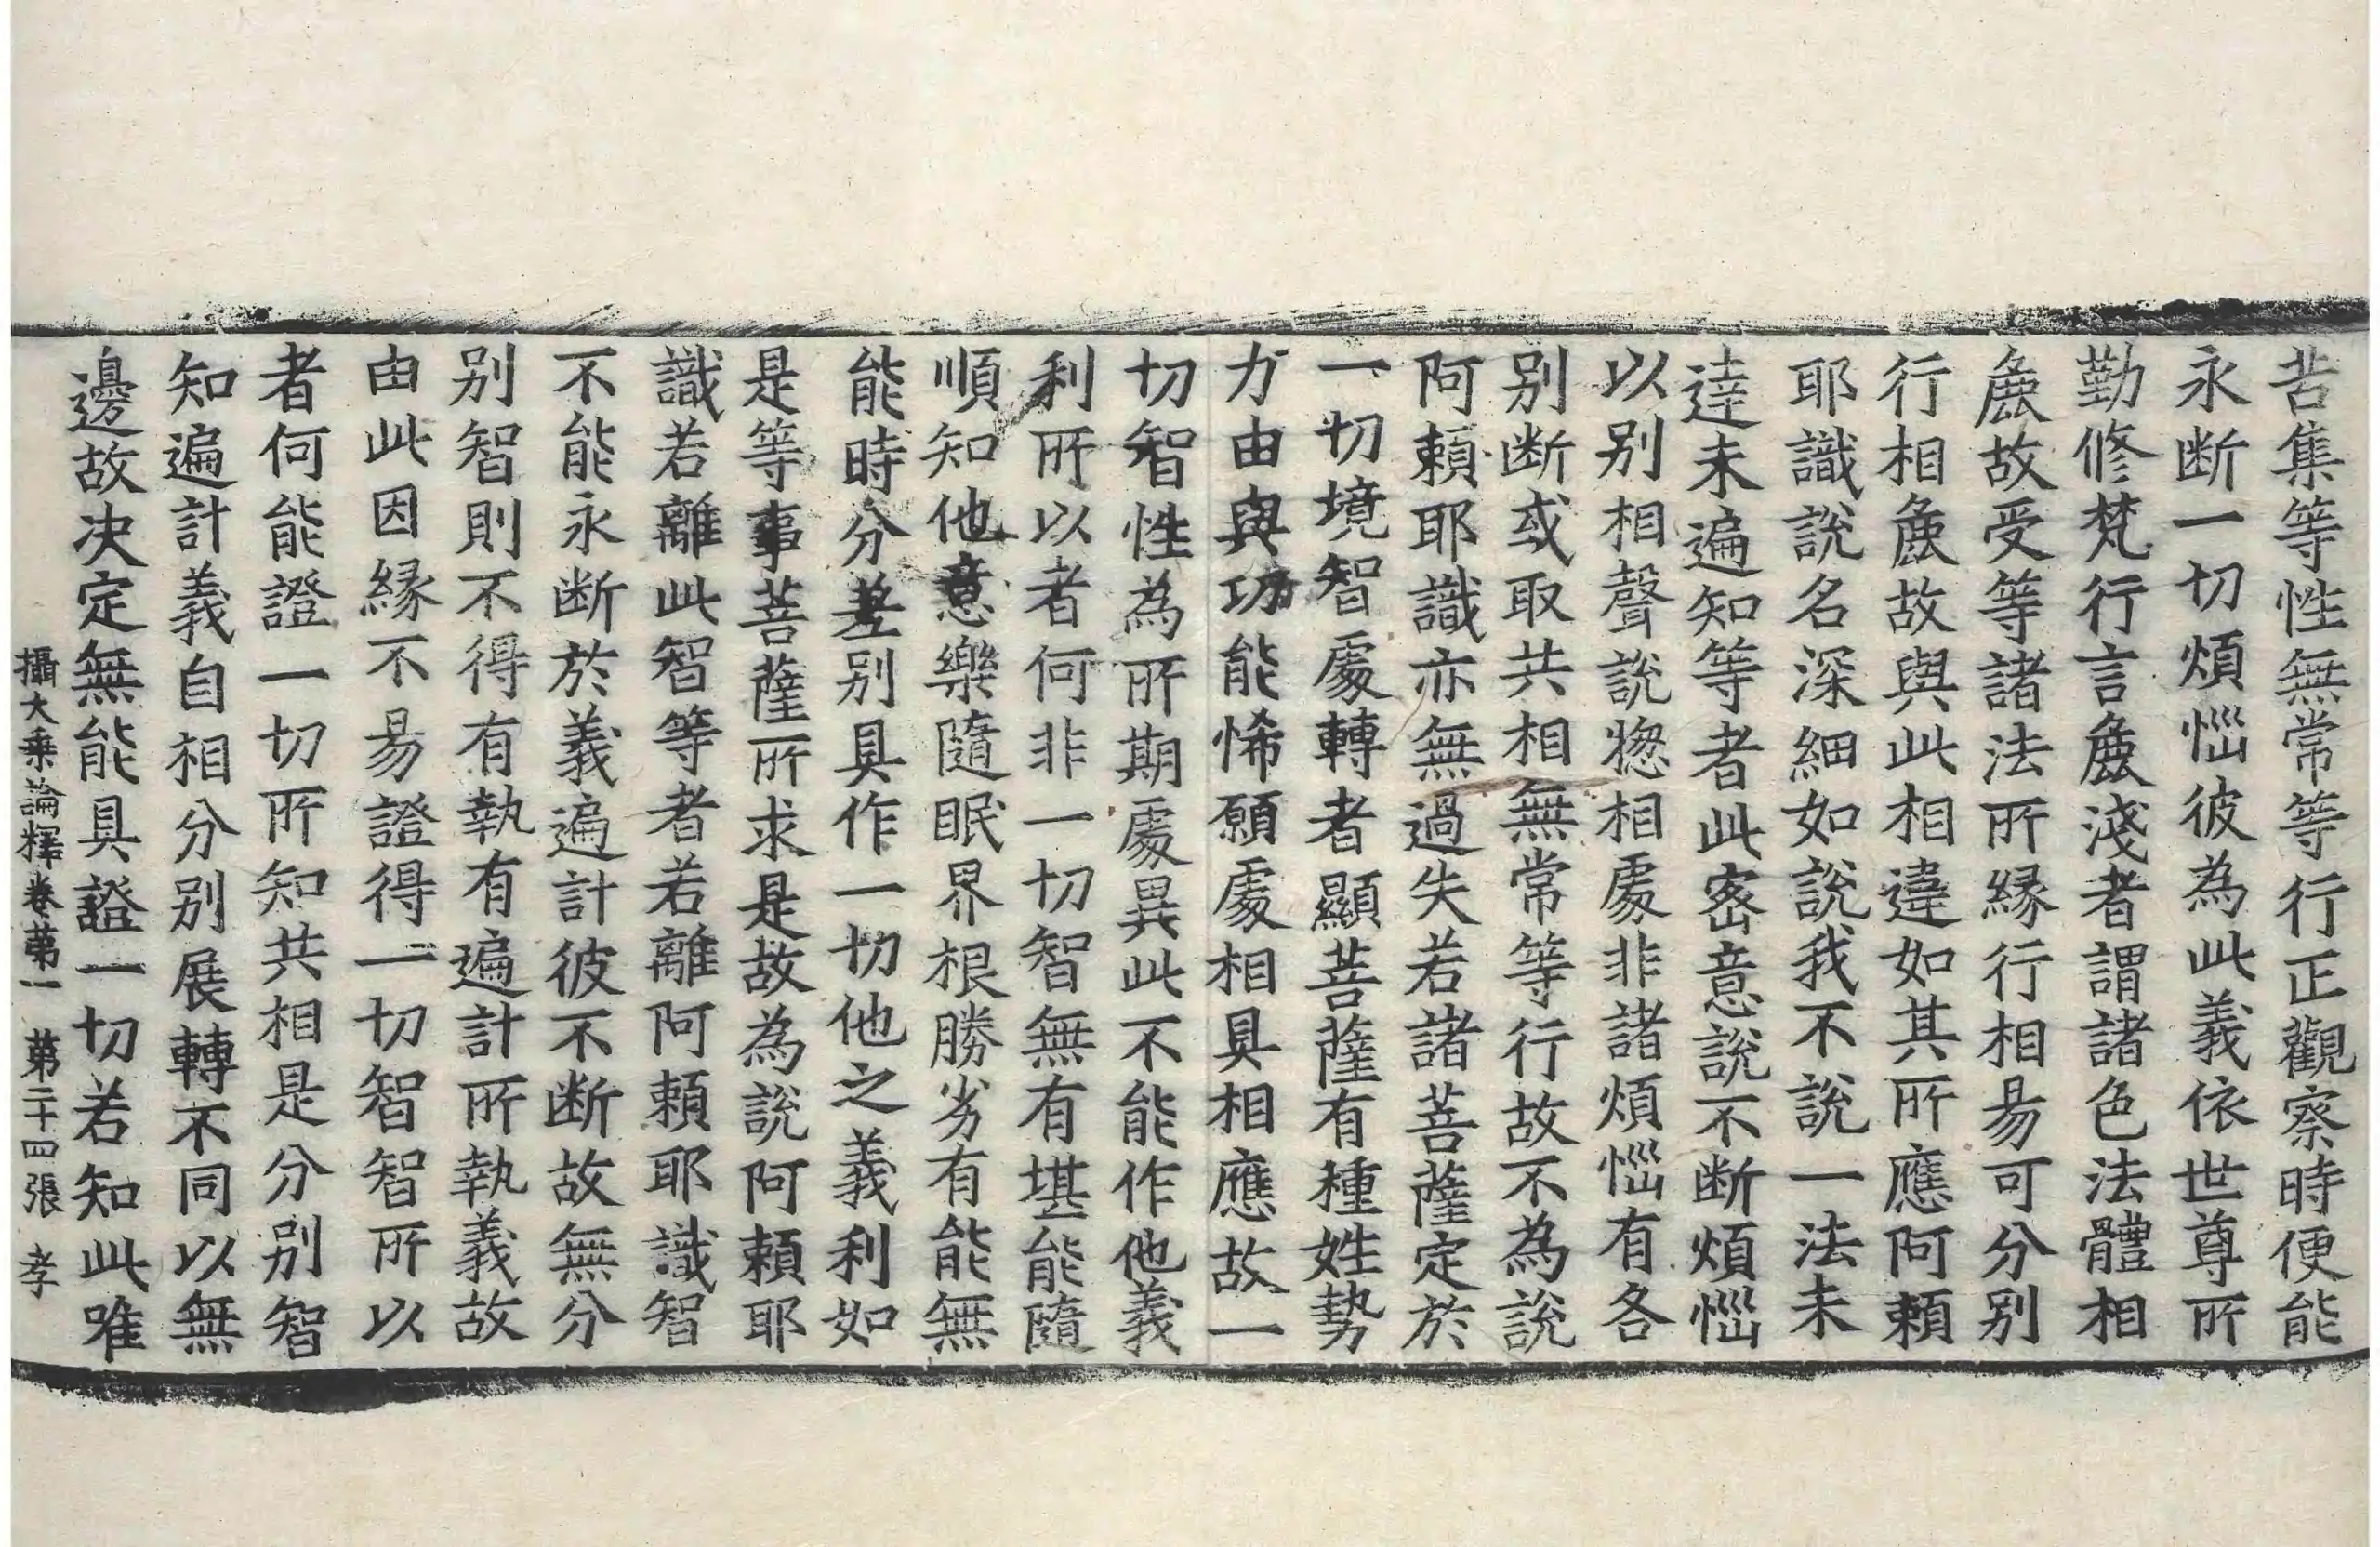 苦集等性無常等行正觀察時便能
永断一切煩惱彼為此義依世尊所
勤修梵行言麁淺者謂諸色法體相
麁故受等諸法所緣行相易可分別
行相麁故與此相違如其所應阿頼
耶識說名深細如說我不說一法未
達未遍知等者此密意說不断煩惱
以別相聲說惣相處非諸煩惱有各
別断或取共相無常等行故不為說
阿頼耶識亦無過失若諸菩薩定於
一切境智處轉者顯菩薩有種姓勢
力由與功能悕願處相具相應故一
切智性為所期處異此不能作他義
利所以者何非一切智無有堪能隨
順知他意樂隨眠界根勝劣有能無
能時分差別具作一切他之義利如
是等事菩薩所求是故為說阿頼耶
識若離此智等者若離阿頼耶識智
不能永断於義遍計彼不断故無分
別智則不得有執有遍計所執義故
由此因緣不易證得一切智智所以
者何能證一切所知共相是分別智
知遍計義自相分別展轉不同以無
邊故决定無能具證一切若知此唯
攝大乗論釋卷第一 第二十四張 孝